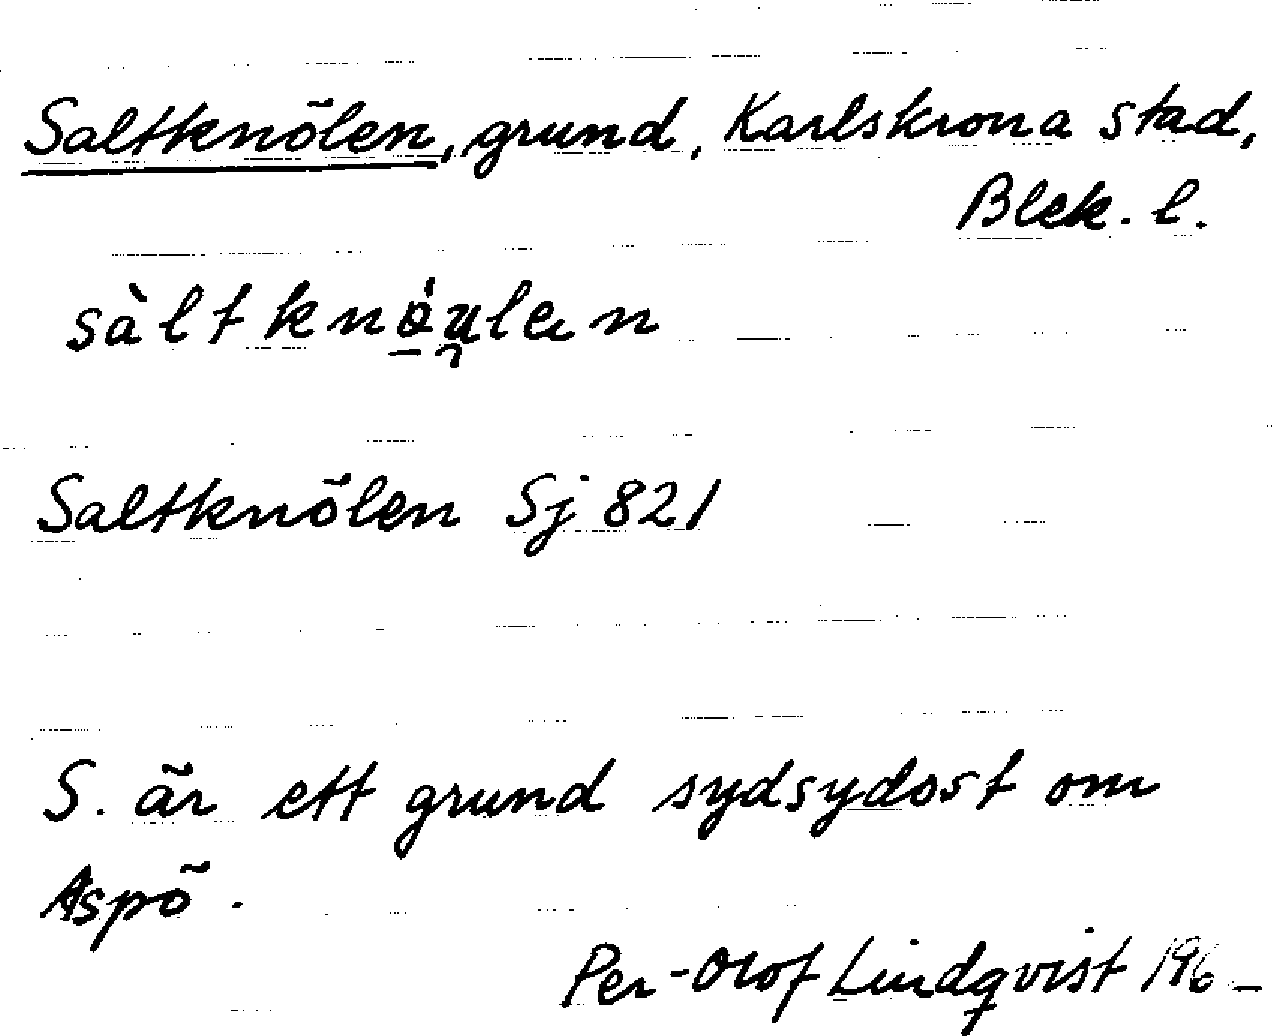 Saltknölen, grund, Karlskrona stad,
Blek. l.
Saltknölen Sj 821
S. är ett grund sydsydost om
Aspö.
Per-Olof Lindqvist 196_